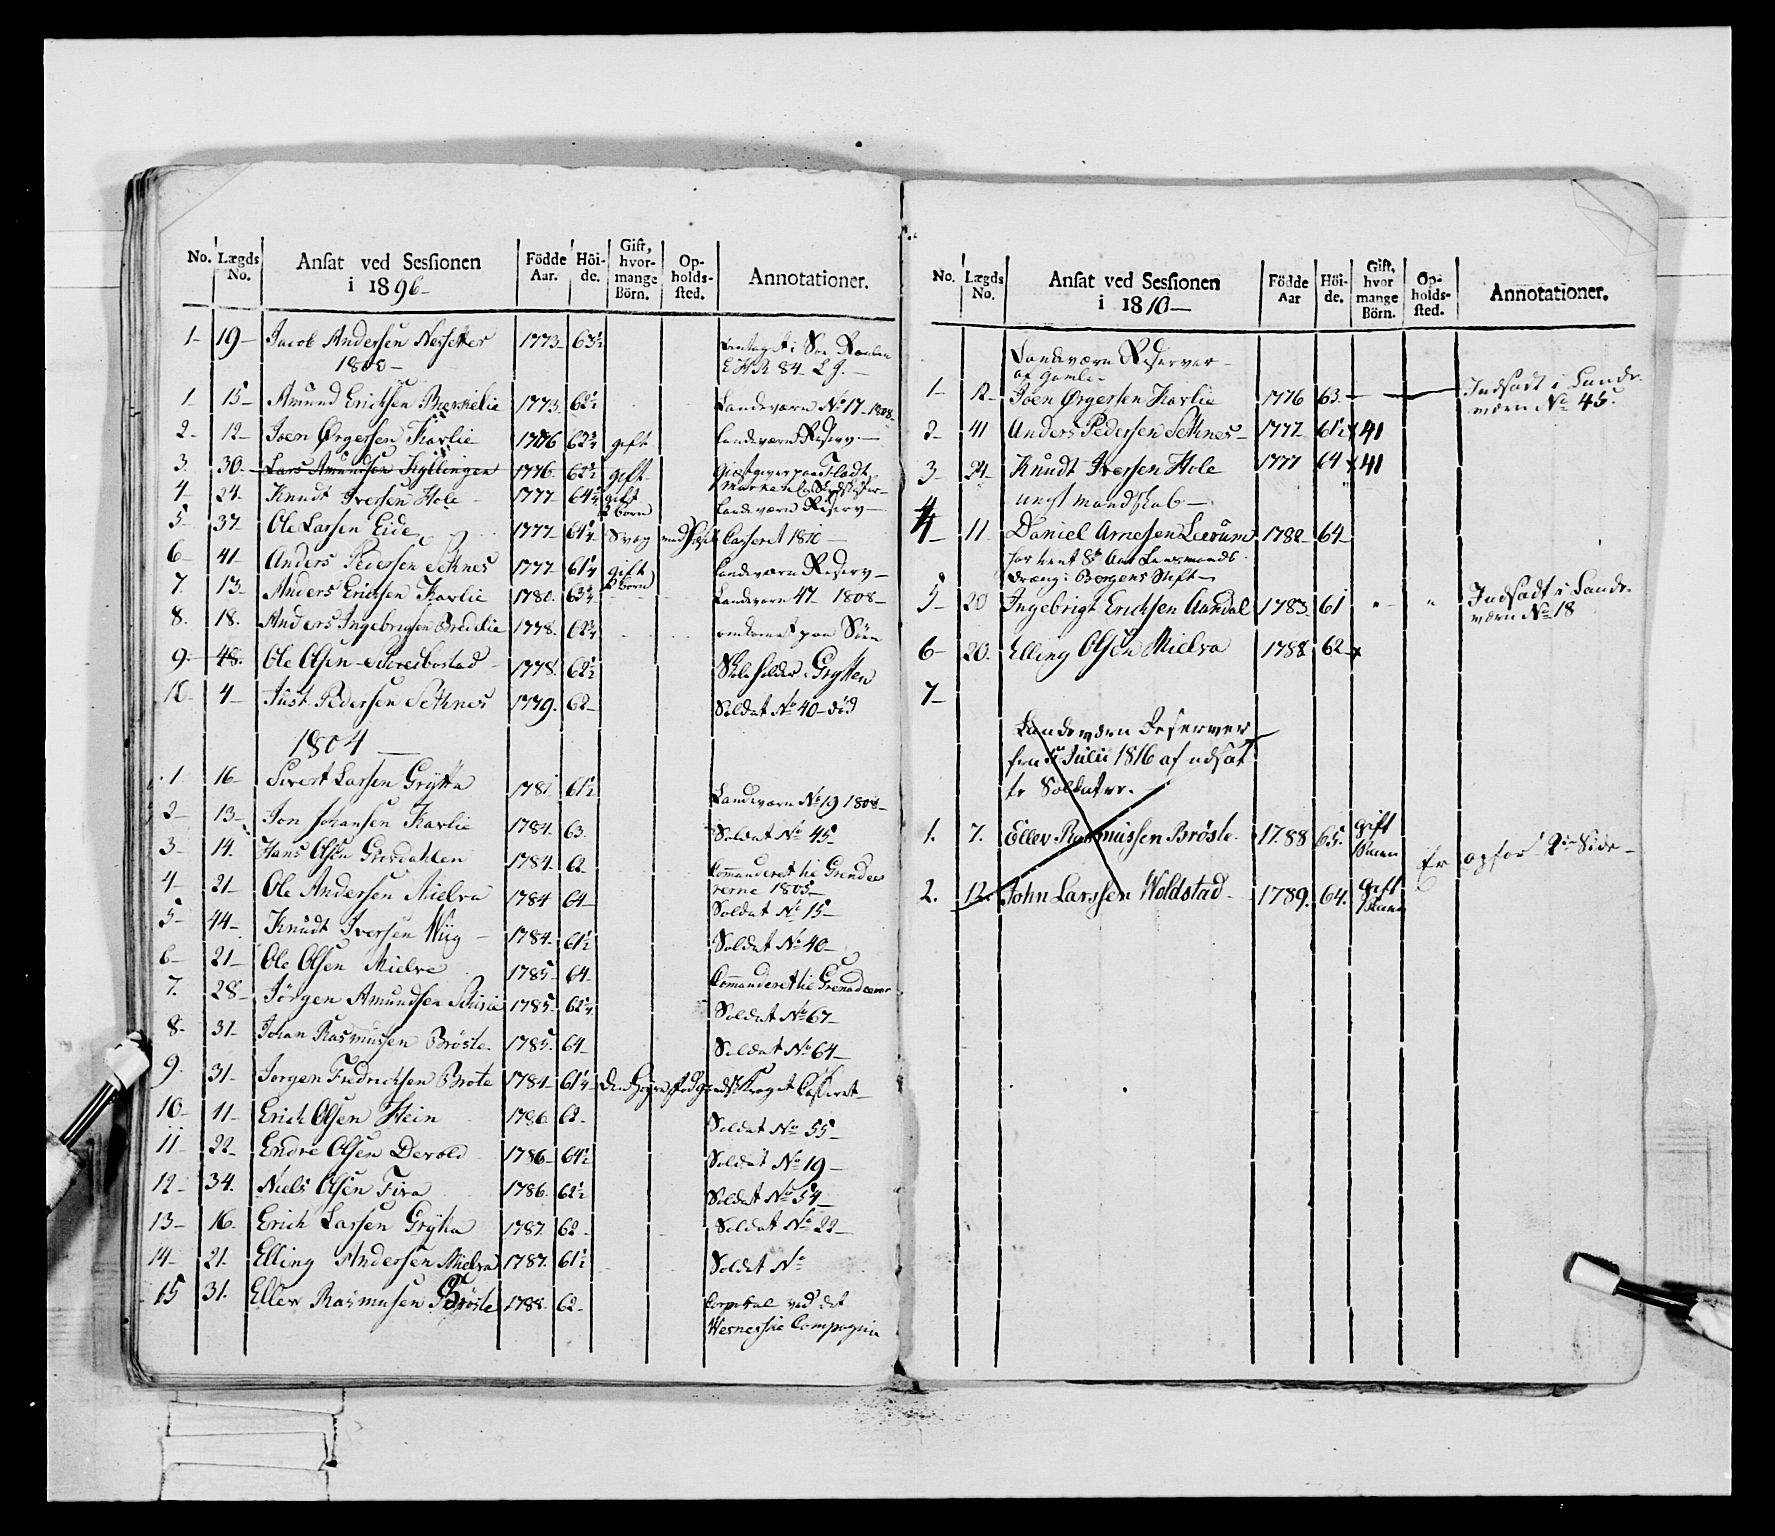 No. Lægds No. Ansat ved Sessionen i 1896 Födde Aar. Höi-de. Gift, hvor-mange Börn. Op-holds-sted. Annotationer.
1- 19- Jacob Andersen 1773 63½
1800-
1- 15- Amund Erichsen 1773 62½ Landeværn No 17-1808-
2- 12- Joen Ørgersen Kavlie 1776 62¾ gift Landeværn Reserv-
3. 30. Lars Amundsen Kyllingen 1776 62½ gift
4- 24- Knudt Iversen Hole 1777 64¾ gift börn Landeværn Reserv-
5- 37 Ole Larsen Eide 1777 61¼ Svag Casseret 1810-
6- 41- Anders Pedersen Sethnes 1777 61¼ gift börn Landeværn Reserv-
7. 13- Anders Erichsen Kavlie 1780. 63¾ Landevern 47- 1808-
8. 18. Anders Ingebrigtsen Bredelie 1778. 62¾
9- 48. Ole Olsen 1778. 62½ Skoleholder i Grytten
10- 4- Just Pedersen Sethnes 1779. 62- Soldat No 40- död
1804-
1. 16- Sivert Larsen Grytta 61½ Landeværn No 19 1808-
2- 13- Jon Johansen Kavlie 1784. 63. Soldat No 45-
3- 14. Hans Olsen Grosdahlen 1784. 62- Commanderet til
rerne 1805-
4- 21- Ole Andersen Mielva 1784 64- Soldat No 15-
5- 44- Knudt Iversen Wiig- 1784. 61½ Soldat No 40-
6- 21- Ole Olsen Mielve 1785- 64- Commanderet til
7. 28- Jörgen Amundsen 1785. 62¼ Soldat No 67-
8- 31- Johan Rasmussen Bröste 1785. 64- Soldat No 64-
9. 31- Jörgen Fredrichsen Bröte 1784- 61¼ Casseret-
10- 11- Erich Olsen Hein 1786 62- Soldat No 55-
11 22- Endre Olsen Devold 1786- 64½ Soldat No 19-
12- 34. Niels Olsen Fiva 1786. 62½ Soldat No 54-
13- 16. Erich Larsen Grytta 1787. 62- Soldat No 22-
14- 21. Elling Andersen Mielva 1787. 61½ Soldat No
15 31. Ellev Rasmusen Bröste 1788. 62- Corporal ved det
Wernesske Compagnie
No. Lægds No. Ansat ved Sessionen i 1810- Födde Aar Höi-de. Gift, hvor mange Börn. Op-holds-sted. Annotationer.
Landeværn Reserver-
af gamle-
1- 12- Joen Ørgersen Kavlie 1776 63- Indsadt i Lande-
værn No 45.
2- 41 Anders Pedersen Sethnes- 1777 61½ x 41
3- 24. Knudt Iversen Hole 1777 64 x 41
ungt mandskab-
4- 11 Daniel Arnesen Leerum 1782- 64-
dreng i Bergens Stift-
5- 20 Ingebrigt Erichsen Aandal 1783 61 " " Indsadt i Lande-
værn No 18
6- 20. Elling Olsen Mielva 1788 62- x
7-
Landeværn Reserver
fra Julii 1816 af udsat
te Soldater.
1. 7. Ellev Rasmussen Bröste- 1788 65. Gift Er opfört 2de Side-
2. 12. John Larssen Woldstad- 1789. 64. Gift